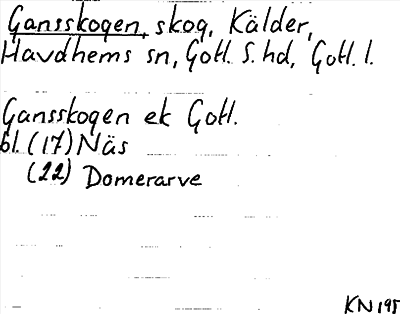 Gansskogen, skog, Kälder,
Havdhems sn, Gotl. S. hd, Gotl. l.
Gansskogen ek Gotl.
bl. (17) Näs
(22) Domerarve
KN 195